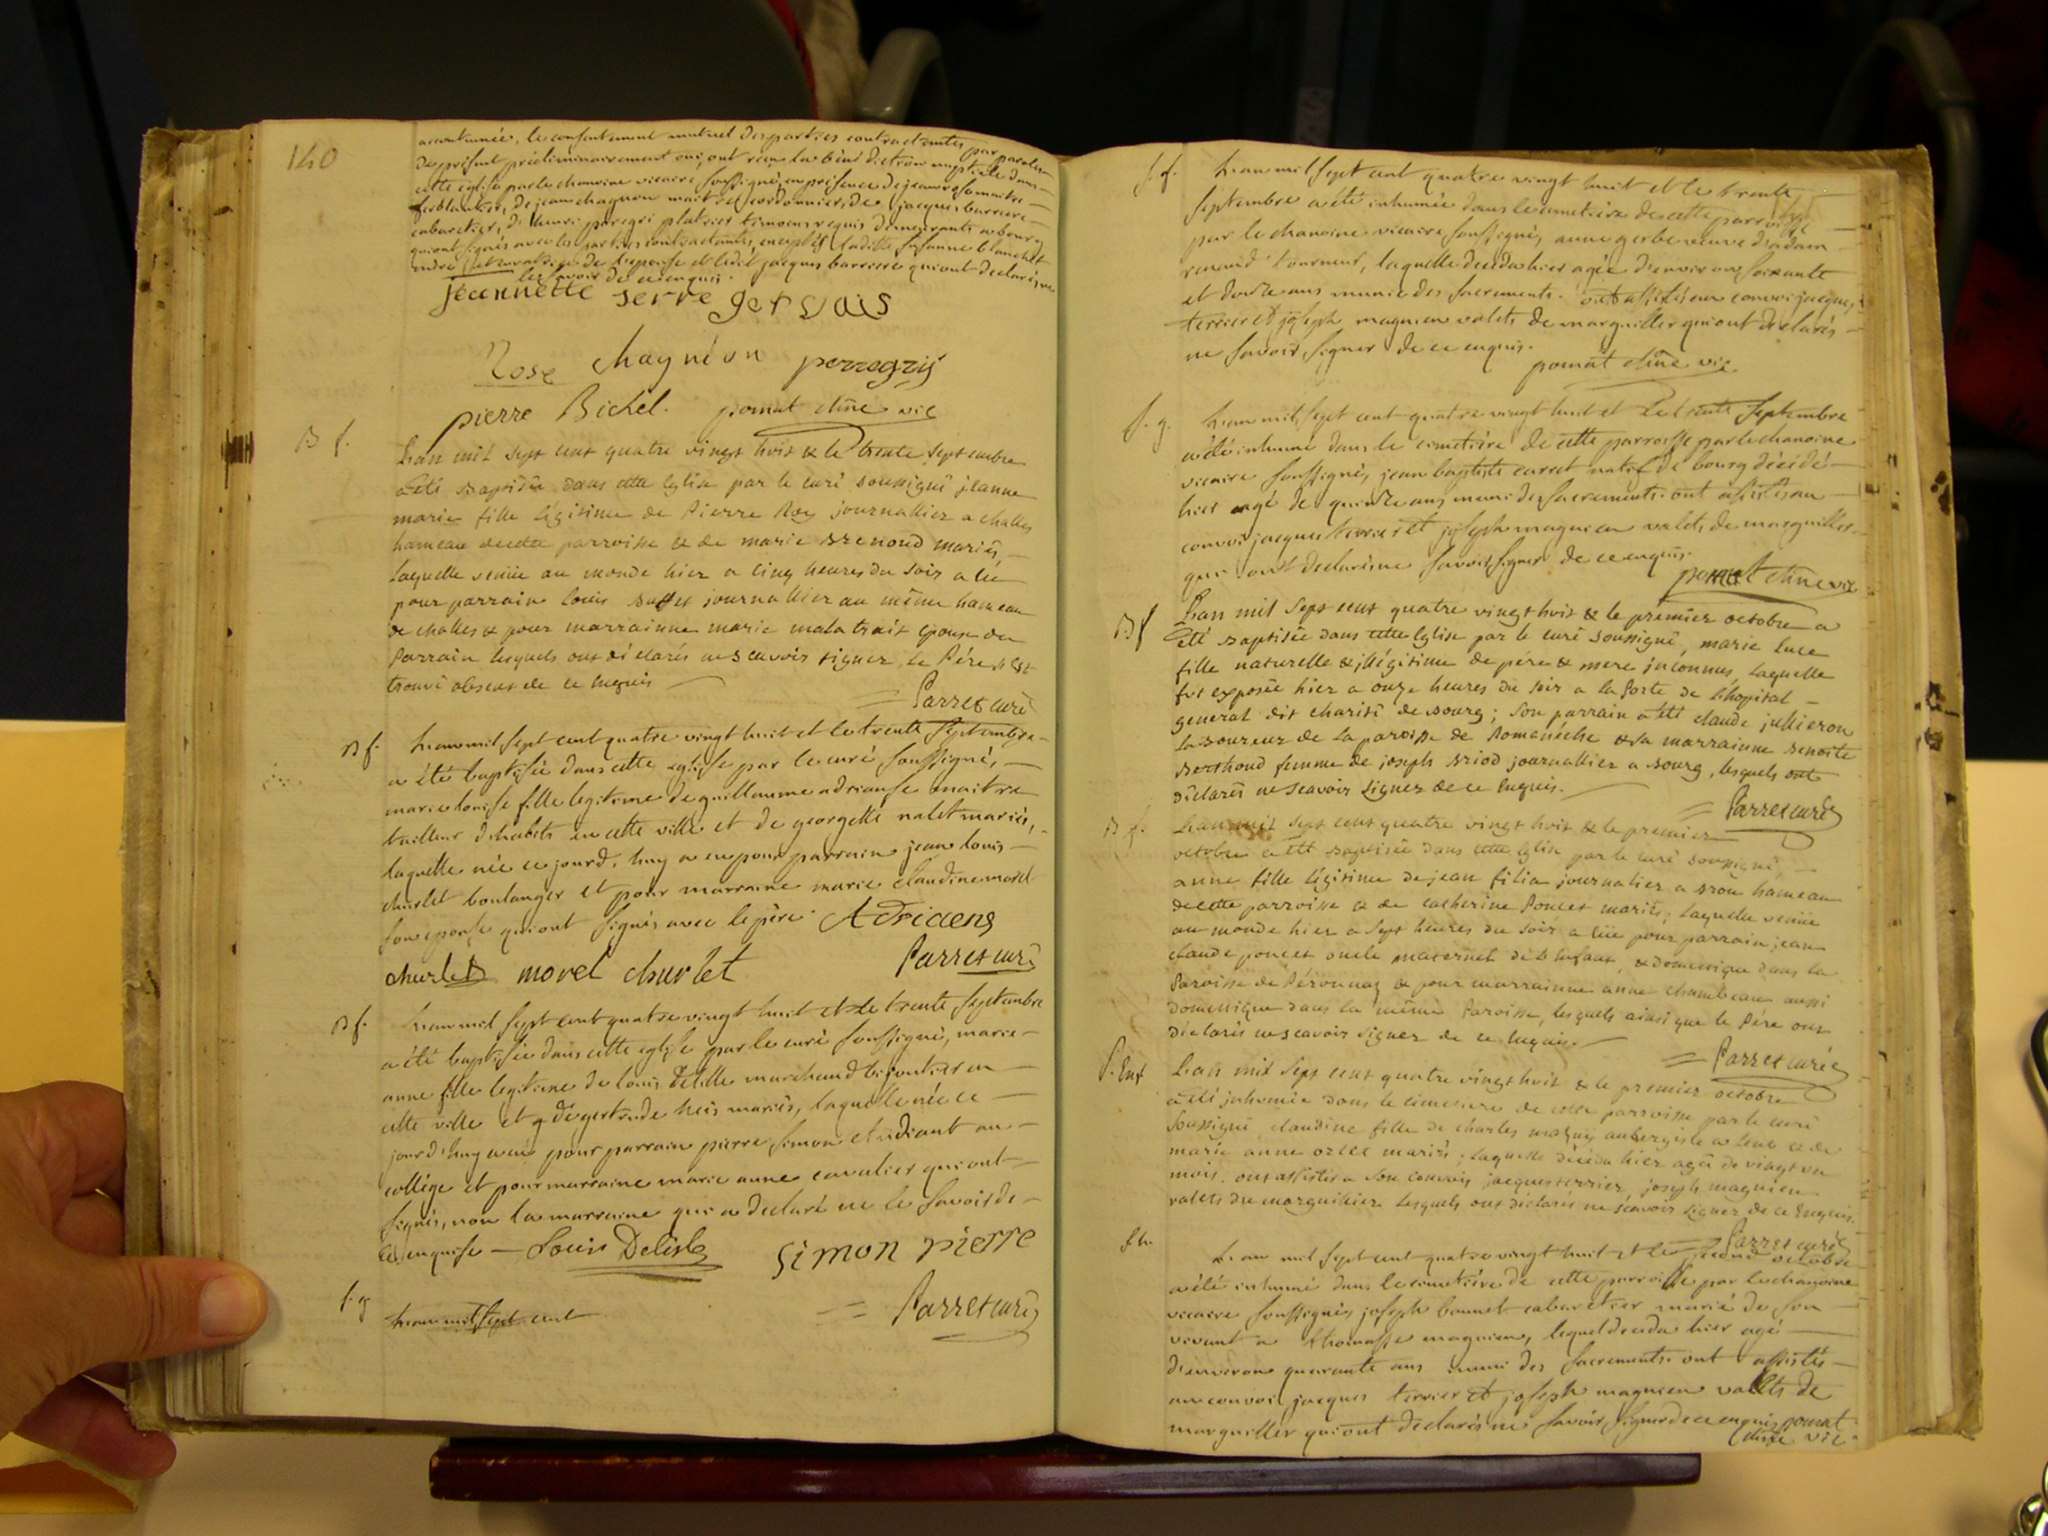 140
accoutumée, le consentement mutuel des parties contractantes par paroles
de présent préliminairement oui, ont reçu la bénédiction nuptiale dans
cette eglise par le chanoine vicaire soussigné, en présence de jean rose maitre
ferblantier, de jean chagneon maitre cordonnier, de jacques barriere
cabaretier, de peregri platrier témoins requis demeurants a bourg
qui ont signés avec les parties contractantes, excepté ladite susanne blanchet
mère de l'epouse et ledit jacques barriere qui ont declarés ne
le savoir de ce enquis.
jeannette serre gervais
Rose chagnéon perregrij
pierre Bichel. pomat chne vic
B f.
L'an mil sept cent quatre vingt huit & le trente septembre
a été baptisée dans cette Eglise par le curé soussigné jeanne
marie fille légitime de Pierre Roy journallier a challes
hameau de cette parroisse & de marie brenoud mariés,
laquelle venüe au monde hier a cinq heures du soir a eü
pour parrain louis journallier au même hameau
de challes & pour marrainne marie malatrait épouse du
Parrain lesquels ont déclarés ne scavoir signer, le Pére s'est
trouvé absent de ce Enquis
Parret curé
B f.
L'an mil sept cent quatre vingt huit et le trente septembre
a été baptisée dans cette eglise par le curé soussigné,
marie louise fille legitime de guillaume adrianse maitre
tailleur d'habits en cette ville et de georgette nalet mariés,
laquelle née ce jourd'huy a eu pour parrain jean louis
charlet boulanger et pour marraine marie claudine morel
son epouse qui ont signés avec le père. Adriaens
charlet morel charlet Parret curé
B f.
L'an mil sept cent quatre vingt huit et le trente septembre
a été baptisée dans cette eglise par le curé soussigné, marie
anne fille legitime de louis Delille marchand bijoutier en
cette ville et de gertrude heis mariés, laquelle née ce
jourd'huy a eu pour parrain pierre simon etudiant au
collège et pour marraine marie anne cavalier qui ont
signés, non la marraine qui a declaré ne le savoir de
ce enquise — Louis Delisle simon pierre
Parret curé
S. g
L'an mil sept cent
S. f.
L'an mil sept cent quatre vingt huit et le trente
septembre a été inhumée dans le cimetière de cette parroisse
par le chanoine vicaire soussigné, anne gerbe veuve d'adam
renaud tourneur, laquelle decéda hier agée d'environ soixante
et douze ans munie des sacrements. ont assistés au convoi jacques
terrier et joseph magnien valets de marguiller qui ont declarés
ne savoir signer de ce enquis.
pomat chne vic.
S. g.
L'an mil sept cent quatre vingt huit et le trente septembre
a été inhumé dans le cimetière de cette parroisse par le chanoine
vicaire soussigné, jean baptiste carret natif de bourg décédé
hier agé de quinze ans muni des sacrements. ont assistés au
convoi jacques terrier et joseph magnien valets de marguiller
qui ont declarés ne savoir signer de ce enquis.
pomat chne vic
B f
L'an mil sept cent quatre vingt huit & le premier octobre a
été baptisée dans cette Eglise par le curé soussigné, marie luce
fille naturelle & illégitime de pére & mere inconnus, laquelle
fut exposée hier a onze heures du soir a la Porte de l'hopital
general dit charité de bourg; son parrain a été claude jullieron
laboureur de la paroisse de Romanèche & sa marrainne benoite
berthoud femme de joseph briod journallier a bourg, lesquels ont
déclarés ne scavoir signer de ce Enquis.
Parret curé
B f.
L'an mil sept cent quatre vingt huit & le premier
octobre a été baptisée dans cette Eglise par le curé soussigné,
anne fille légitime de jean filia journalier a brou hameau
de cette parroisse & de catherine Poncet mariés, laquelle venüe
au monde hier a sept heures du soir a eüe pour parrain jean
claude poncet oncle maternel de l'Enfant, & domestique dans la
Paroisse de Péronnas & pour marrainne anne chambeau aussi
domestique dans la même Paroisse, lesquels ainsi que le Pére ont
déclarés ne scavoir signer de ce Enquis.
Parret curé
S. Enf
L'an mil sept cent quatre vingt huit & le premier octobre
a été inhumée dans le cimetiere de cette parroisse par le curé
soussigné, claudine fille de charles aubergiste a & de
marie anne mariés; laquelle décéda hier agée de vingt un
mois. ont assistés a son convoy jacques terrier, joseph magnien
valets du marguillier lesquels ont déclarés ne scavoir signer de ce Enquis.
Parret curé
S h.
L'an mil sept cent quatre vingt huit et le second octobre
a été inhumé dans le cimetière de cette parroisse par le chanoine
vicaire soussigné, joseph bonnet cabaretier marié de son
vivant a thomasse magnien, lequel deceda hier agé
d'environ quarante ans muni des sacrements. ont assistés
au convoi jacques terrier et joseph magnien valets de
marguiller qui ont declarés ne savoir signer de ce enquis pomat
chne vic.